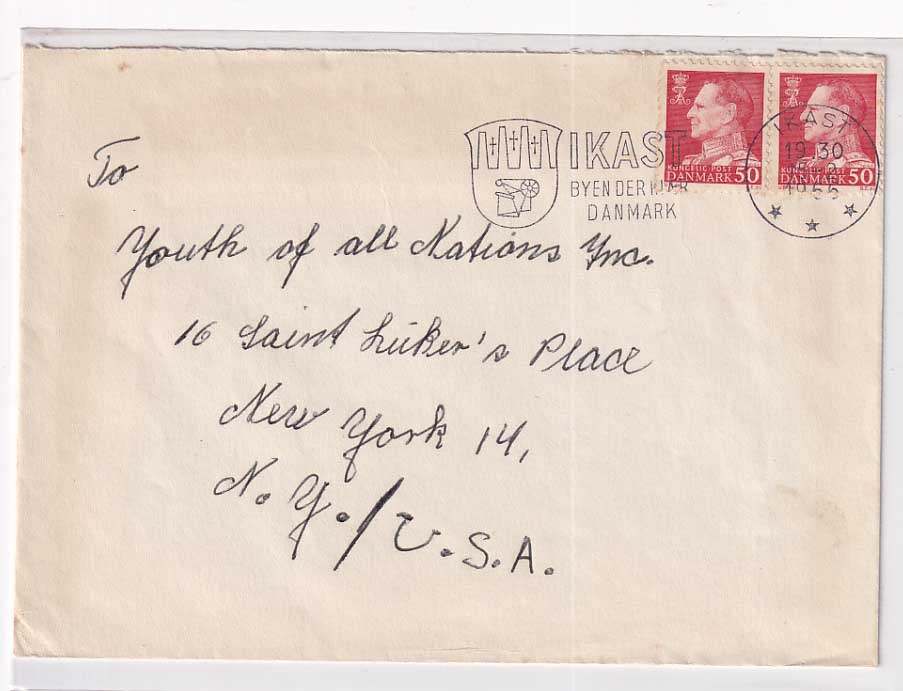 KONGELIG POST
DANMARK 50
KONGELIG POST
DANMARK 50
IKAST
BYEN DER
DANMARK
IKAST
19.30
To
Youth of all Nations Inc.
16 Saint Lüker's Place
New York 14,
N.Y./U.S.A.